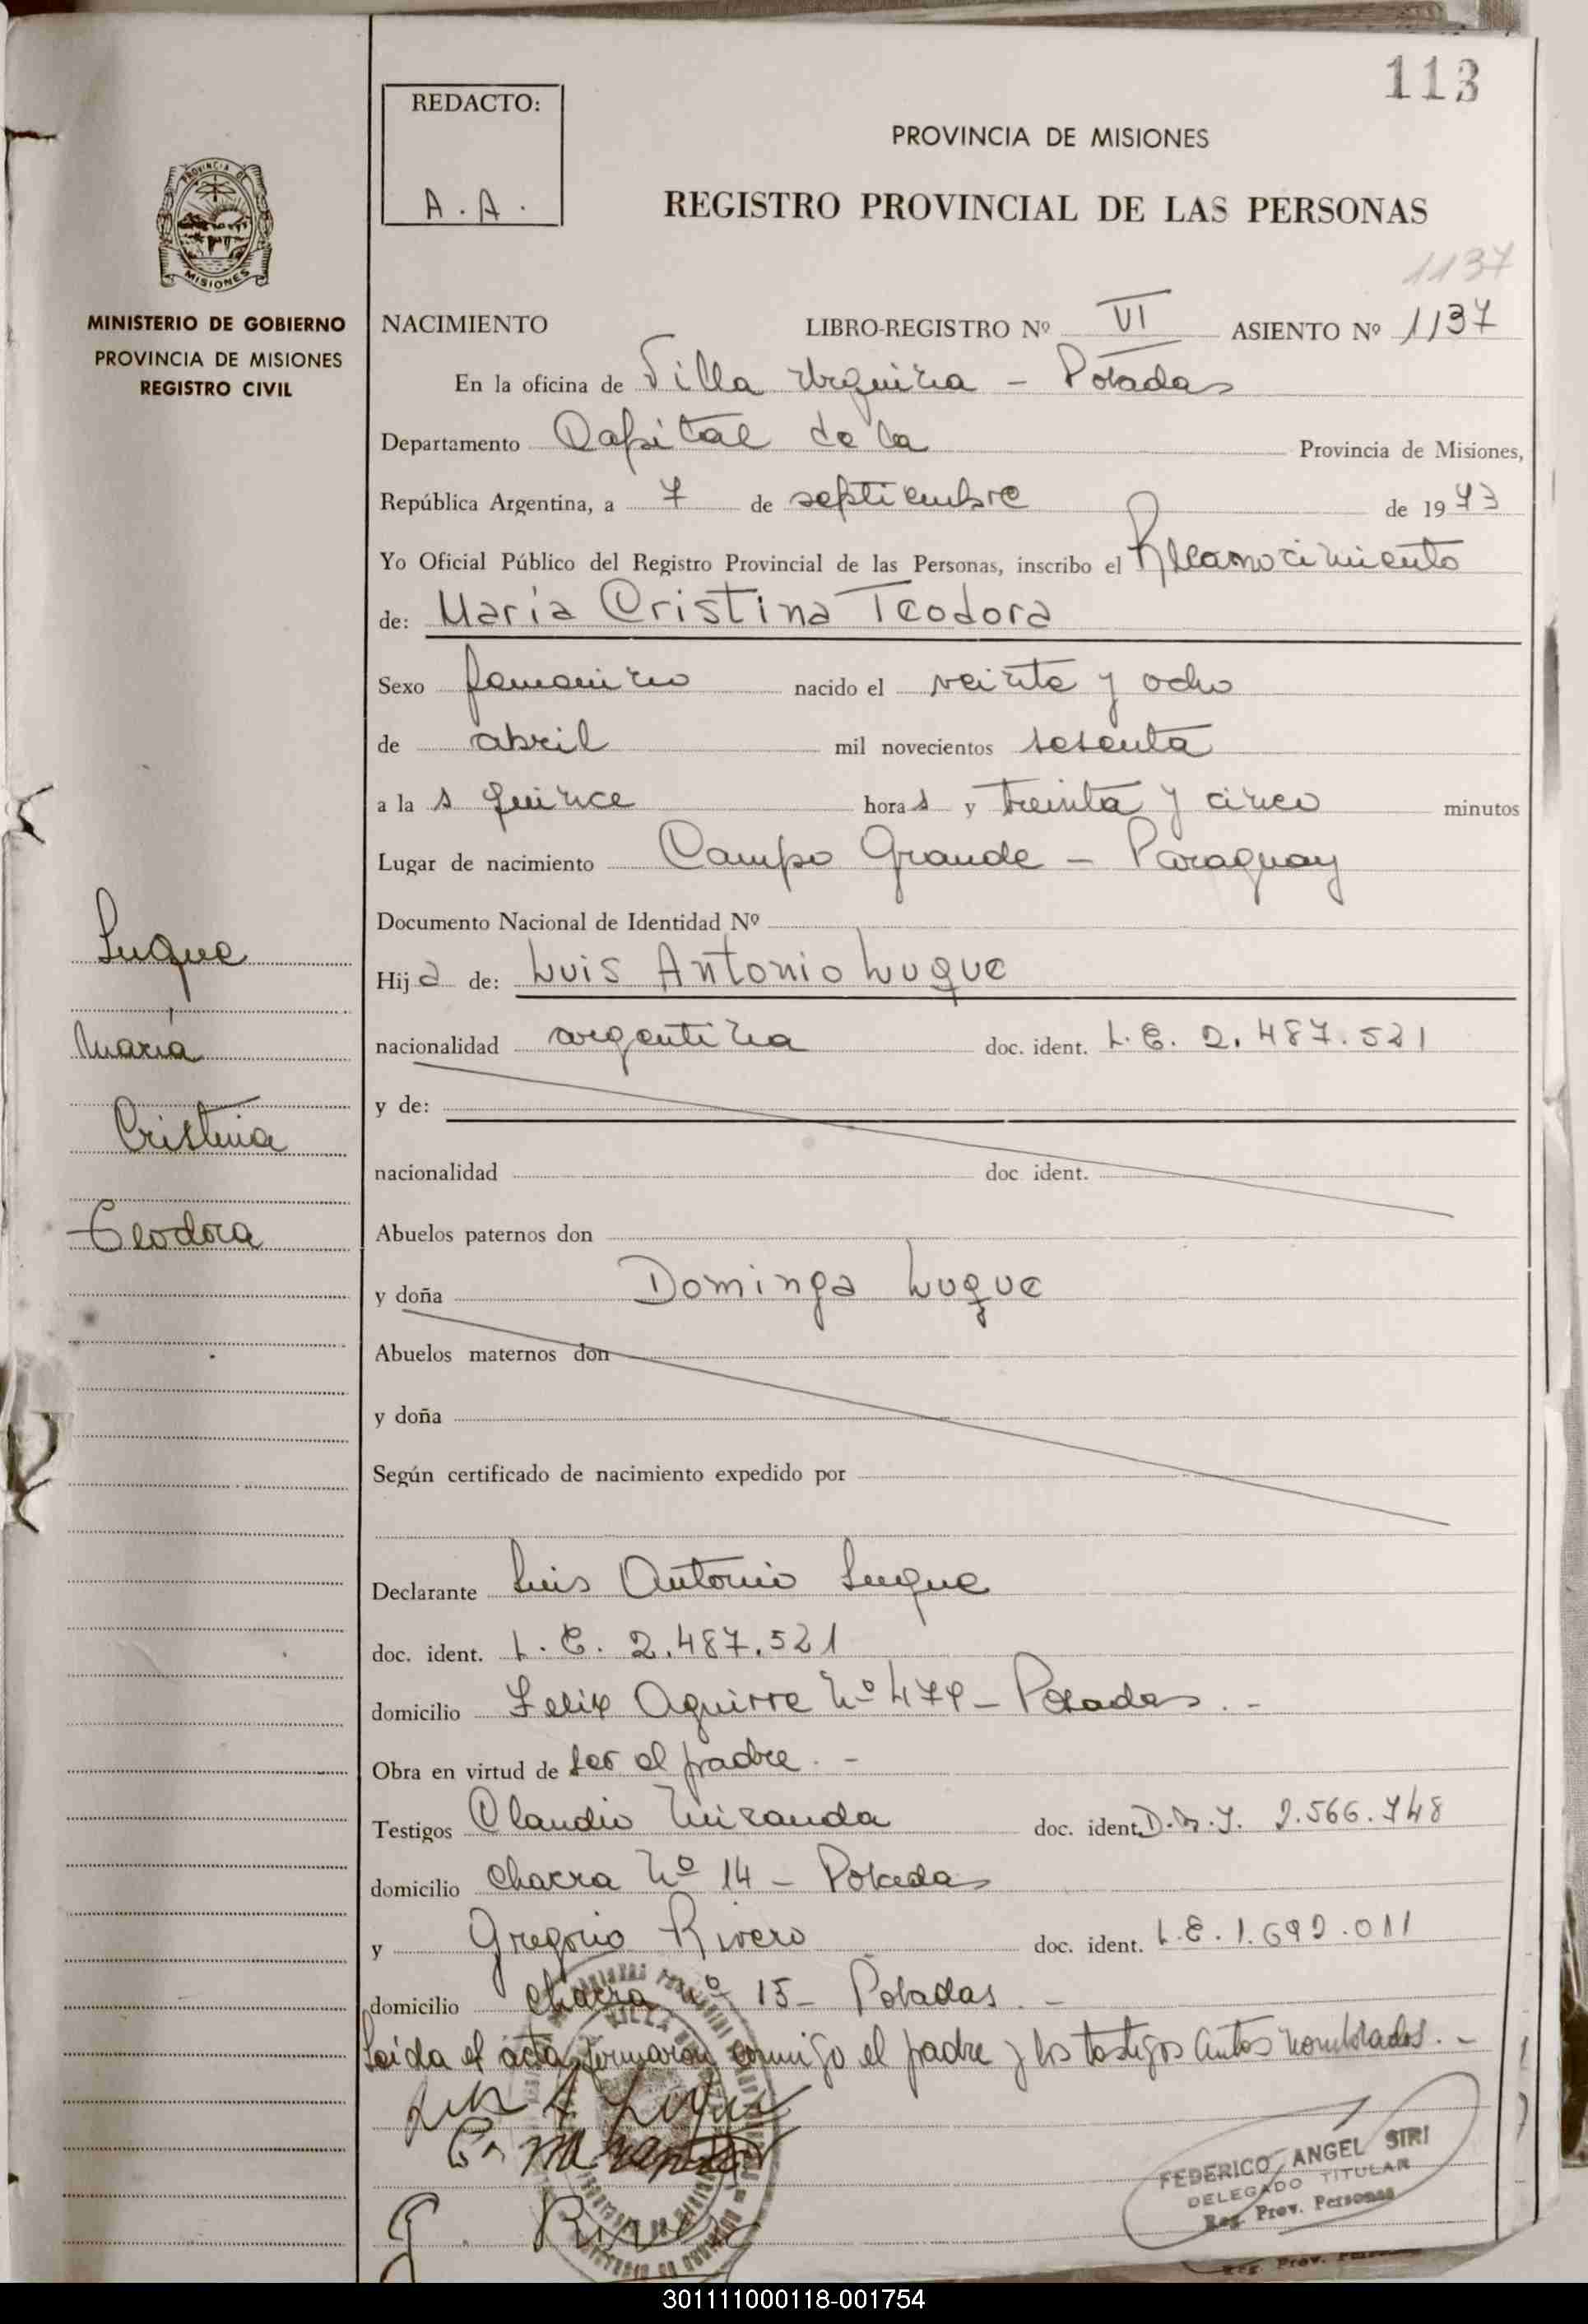 113
REDACTO:
A. A.
PROVINCIA DE MISIONES
REGISTRO PROVINCIAL DE LAS PERSONAS
1137
PROVINCIA DE
MISIONES
MINISTERIO DE GOBIERNO
PROVINCIA DE MISIONES
REGISTRO CIVIL
NACIMIENTO LIBRO-REGISTRO Nº VI ASIENTO Nº 1137
En la oficina de Villa Urquiza - Posadas
Departamento Capital de la Provincia de Misiones,
República Argentina, a 7 de septiembre de 1973
Yo Oficial Público del Registro Provincial de las Personas, inscribo el Reconocimiento
de: María Cristina Teodora
Sexo femenino nacido el veinte y ocho
de abril mil novecientos sesenta
a la s quince hora s y treinta y cinco minutos
Lugar de nacimiento Campo Grande - Paraguay
Documento Nacional de Identidad Nº
Luque
María
Cristina
Teodora
Hij a de: Luis Antonio Luque
nacionalidad argentina doc. ident. L. E. 2.487.521
y de:
nacionalidad doc ident.
Abuelos paternos don
y doña Dominga Luque
Abuelos maternos don
y doña
Según certificado de nacimiento expedido por
Declarante Luis Antonio Luque
doc. ident. L. E. 2.487.521
domicilio Felix Aguirre Nº 479 - Posadas. -
Obra en virtud de ser el padre. -
Testigos Claudio Miranda doc. ident. D.N.I. 2.566.748
domicilio Chacra Nº 14 - Posadas
y Gregorio Rivero doc. ident. L.E. 1.692.011
domicilio Chacra nº 15 - Posadas. -
Leída el acta, firmaron conmigo el padre y los testigos antes nombrados. -
Luis A Luque
G. Rivero
FEDERICO ANGEL SIRI
DELEGADO TITULAR
Reg. Prov. Personas
Reg. Prov.
301111000118-001754